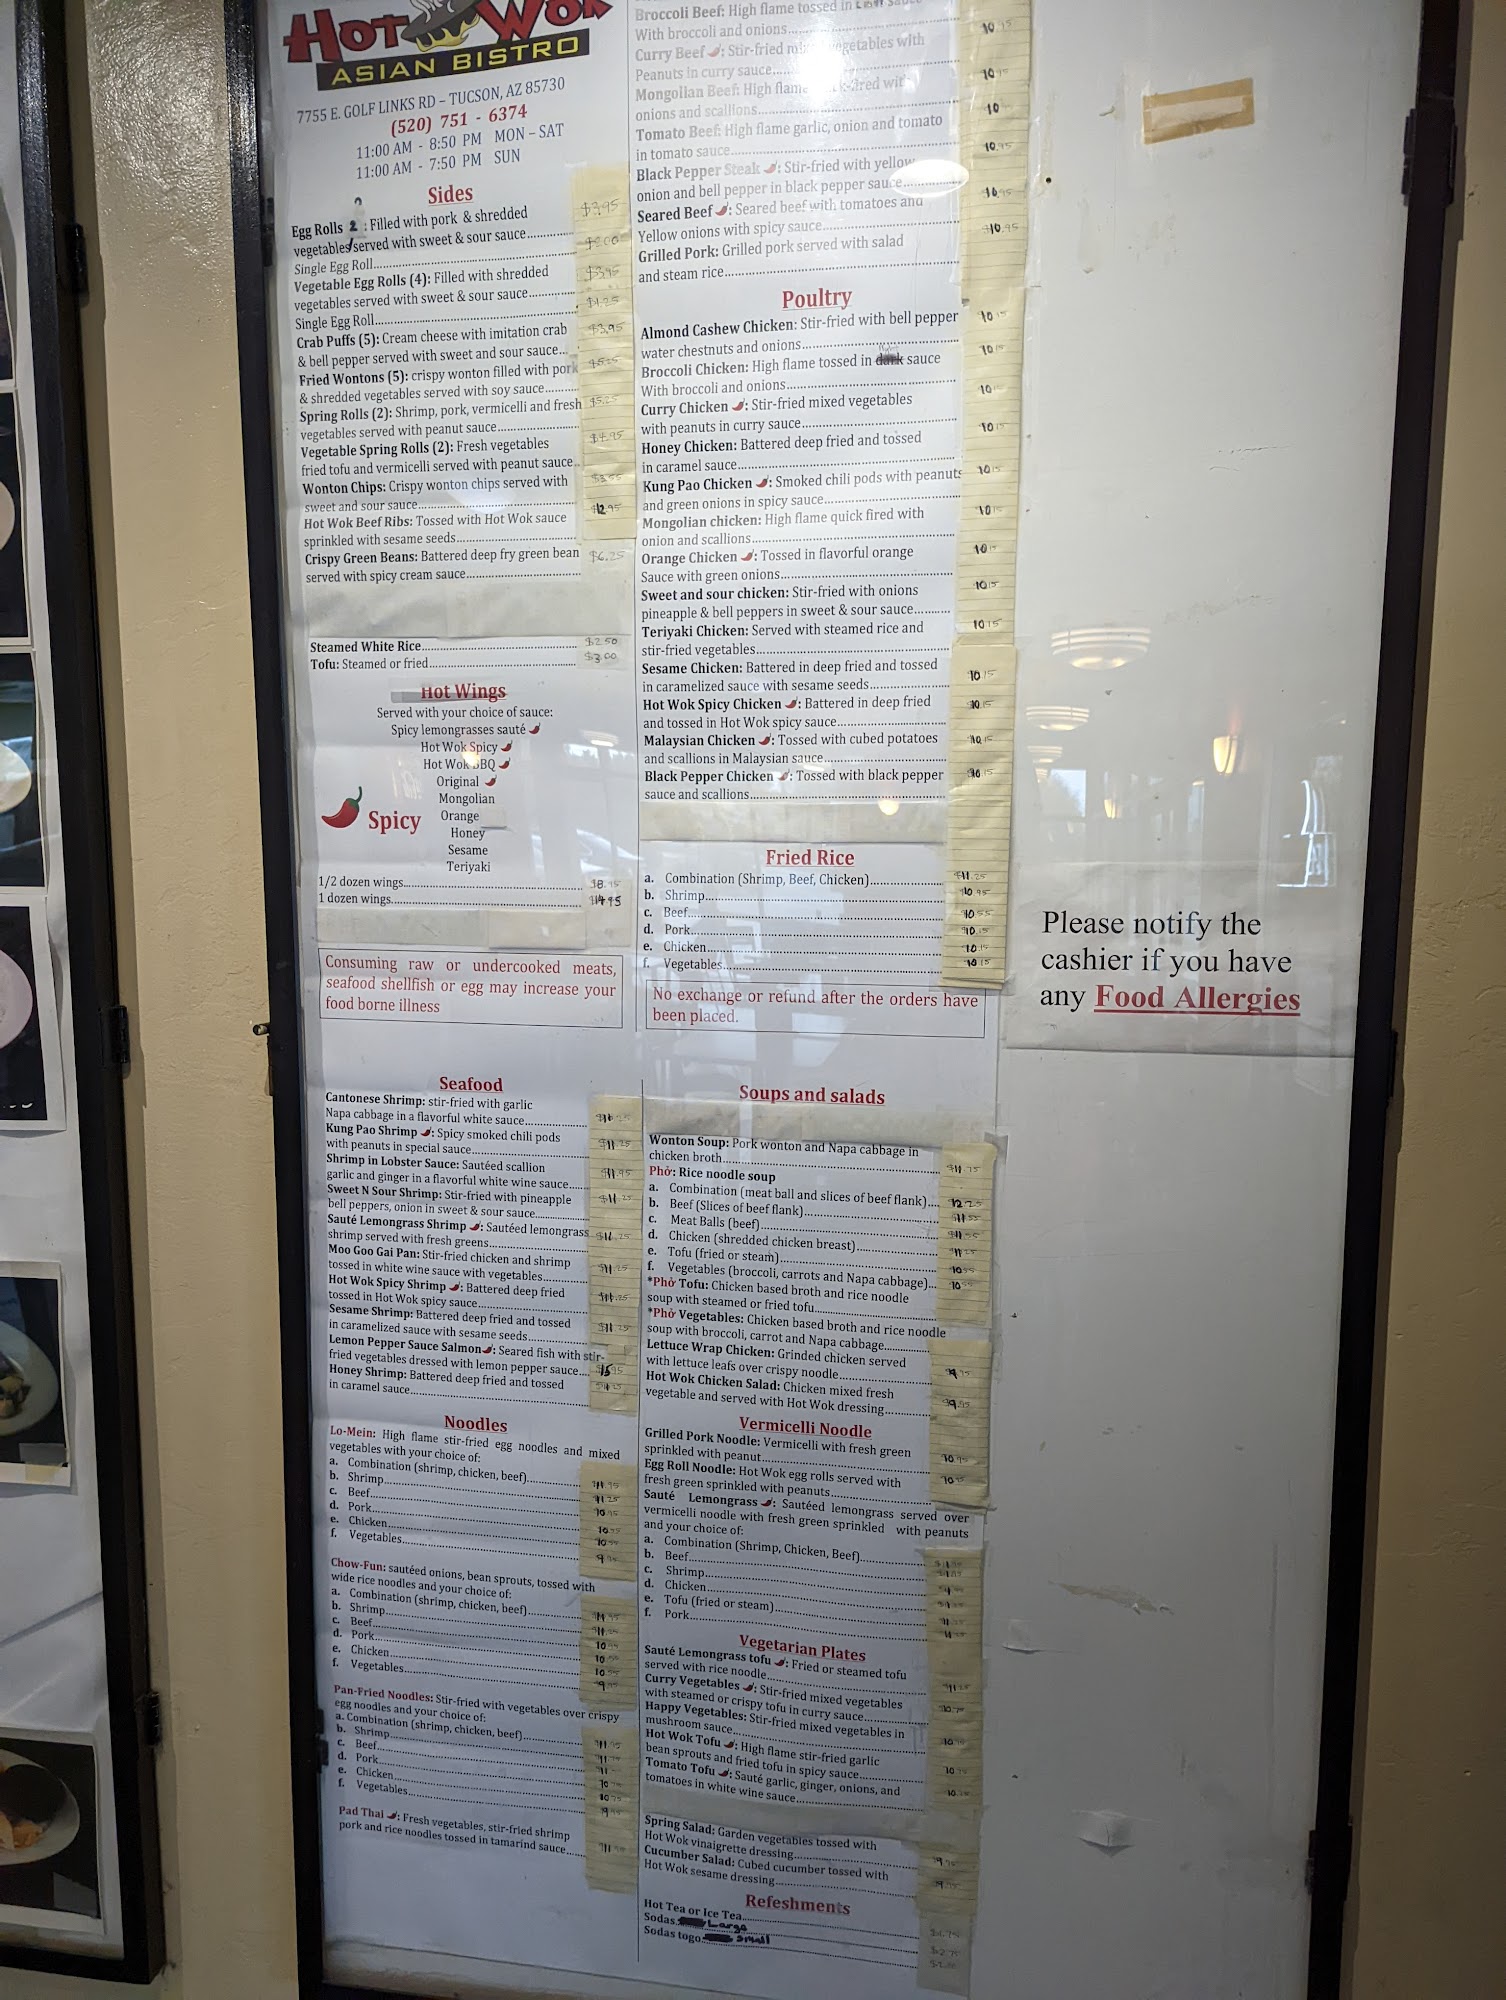 HOT WOK
ASIAN BISTRO
7755 E. GOLF LINKS RD – TUCSON, AZ 85730
(520) 751 - 6374
11:00 AM - 8:50 PM MON – SAT
11:00 AM - 7:50 PM SUN
Sides
Egg Rolls 2 : Filled with pork & shredded
vegetables served with sweet & sour sauce $3.95
Single Egg Roll
Vegetable Egg Rolls (4): Filled with shredded
vegetables served with sweet & sour sauce $3.95
Single Egg Roll $1.25
Crab Puffs (5): Cream cheese with imitation crab
& bell pepper served with sweet and sour sauce... $3.95
Fried Wontons (5): crispy wonton filled with pork
& shredded vegetables served with soy sauce
Spring Rolls (2): Shrimp, pork, vermicelli and fresh
vegetables served with peanut sauce $5.25
Vegetable Spring Rolls (2): Fresh vegetables
fried tofu and vermicelli served with peanut sauce.. $4.95
Wonton Chips: Crispy wonton chips served with
sweet and sour sauce
Hot Wok Beef Ribs: Tossed with Hot Wok sauce
sprinkled with sesame seeds $12.95
Crispy Green Beans: Battered deep fry green bean
served with spicy cream sauce $6.25
Steamed White Rice $2.50
Tofu: Steamed or fried $3.00
Hot Wings
Served with your choice of sauce:
Spicy lemongrasses sauté
Hot Wok Spicy
Hot Wok BBQ
Original
Mongolian
Orange
Honey
Sesame
Teriyaki
Spicy
1/2 dozen wings
1 dozen wings $14.95
Consuming raw or undercooked meats,
seafood shellfish or egg may increase your
food borne illness
Broccoli Beef: High flame tossed in
With broccoli and onions 10.95
Curry Beef : Stir-fried vegetables with
Peanuts in curry sauce
Mongolian Beef: High flame
onions and scallions
Tomato Beef: High flame garlic, onion and tomato
in tomato sauce 10.95
Black Pepper Steak : Stir-fried with yellow
onion and bell pepper in black pepper sauce 10.95
Seared Beef : Seared beef with tomatoes and
Yellow onions with spicy sauce $10.95
Grilled Pork: Grilled pork served with salad
and steam rice
Poultry
Almond Cashew Chicken: Stir-fried with bell pepper
water chestnuts and onions 10.15
Broccoli Chicken: High flame tossed in sauce
With broccoli and onions 10.15
Curry Chicken : Stir-fried mixed vegetables
with peanuts in curry sauce 10.15
Honey Chicken: Battered deep fried and tossed
in caramel sauce 10.15
Kung Pao Chicken : Smoked chili pods with peanuts
and green onions in spicy sauce 10.15
Mongolian chicken: High flame quick fired with
onion and scallions 10.15
Orange Chicken : Tossed in flavorful orange
Sauce with green onions 10.15
Sweet and sour chicken: Stir-fried with onions
pineapple & bell peppers in sweet & sour sauce 10.15
Teriyaki Chicken: Served with steamed rice and
stir-fried vegetables 10.15
Sesame Chicken: Battered in deep fried and tossed
in caramelized sauce with sesame seeds 10.15
Hot Wok Spicy Chicken : Battered in deep fried
and tossed in Hot Wok spicy sauce 10.15
Malaysian Chicken : Tossed with cubed potatoes
and scallions in Malaysian sauce 10.15
Black Pepper Chicken : Tossed with black pepper
sauce and scallions 10.15
Fried Rice
a. Combination (Shrimp, Beef, Chicken) $11.25
b. Shrimp $10.95
c. Beef $10.55
d. Pork $10.15
e. Chicken $10.15
f. Vegetables $10.15
No exchange or refund after the orders have
been placed.
Please notify the
cashier if you have
any Food Allergies
Seafood
Cantonese Shrimp: stir-fried with garlic
Napa cabbage in a flavorful white sauce
Kung Pao Shrimp : Spicy smoked chili pods
with peanuts in special sauce $11.25
Shrimp in Lobster Sauce: Sautéed scallion
garlic and ginger in a flavorful white wine sauce $11.95
Sweet N Sour Shrimp: Stir-fried with pineapple
bell peppers, onion in sweet & sour sauce $11.25
Sauté Lemongrass Shrimp : Sautéed lemongrass
shrimp served with fresh greens $11.25
Moo Goo Gai Pan: Stir-fried chicken and shrimp
tossed in white wine sauce with vegetables $11.25
Hot Wok Spicy Shrimp : Battered deep fried
tossed in Hot Wok spicy sauce $11.25
Sesame Shrimp: Battered deep fried and tossed
in caramelized sauce with sesame seeds $11.25
Lemon Pepper Sauce Salmon : Seared fish with stir-
fried vegetables dressed with lemon pepper sauce $15.95
Honey Shrimp: Battered deep fried and tossed
in caramel sauce
Noodles
Lo-Mein: High flame stir-fried egg noodles and mixed
vegetables with your choice of:
a. Combination (shrimp, chicken, beef) $11.95
b. Shrimp $11.25
c. Beef
d. Pork
e. Chicken
f. Vegetables
Chow-Fun: sautéed onions, bean sprouts, tossed with
wide rice noodles and your choice of:
a. Combination (shrimp, chicken, beef) $11.95
b. Shrimp
c. Beef
d. Pork
e. Chicken
f. Vegetables
Pan-Fried Noodles: Stir-fried with vegetables over crispy
egg noodles and your choice of:
a. Combination (shrimp, chicken, beef) $11.95
b. Shrimp
c. Beef
d. Pork
e. Chicken
f. Vegetables
Pad Thai : Fresh vegetables, stir-fried shrimp
pork and rice noodles tossed in tamarind sauce
Soups and salads
Wonton Soup: Pork wonton and Napa cabbage in
chicken broth
Phở: Rice noodle soup
a. Combination (meat ball and slices of beef flank) 12.25
b. Beef (Slices of beef flank) $11.55
c. Meat Balls (beef) $11.55
d. Chicken (shredded chicken breast) $11.25
e. Tofu (fried or steam)
f. Vegetables (broccoli, carrots and Napa cabbage)
*Phở Tofu: Chicken based broth and rice noodle
soup with steamed or fried tofu
*Phở Vegetables: Chicken based broth and rice noodle
soup with broccoli, carrot and Napa cabbage
Lettuce Wrap Chicken: Grinded chicken served
with lettuce leafs over crispy noodle
Hot Wok Chicken Salad: Chicken mixed fresh
vegetable and served with Hot Wok dressing
Vermicelli Noodle
Grilled Pork Noodle: Vermicelli with fresh green
sprinkled with peanut
Egg Roll Noodle: Hot Wok egg rolls served with
fresh green sprinkled with peanuts
Sauté Lemongrass : Sautéed lemongrass served over
vermicelli noodle with fresh green sprinkled with peanuts
and your choice of:
a. Combination (Shrimp, Chicken, Beef)
b. Beef
c. Shrimp
d. Chicken
e. Tofu (fried or steam)
f. Pork
Vegetarian Plates
Sauté Lemongrass tofu : Fried or steamed tofu
served with rice noodle
Curry Vegetables : Stir-fried mixed vegetables
with steamed or crispy tofu in curry sauce
Happy Vegetables: Stir-fried mixed vegetables in
mushroom sauce
Hot Wok Tofu : High flame stir-fried garlic
bean sprouts and fried tofu in spicy sauce
Tomato Tofu : Sauté garlic, ginger, onions, and
tomatoes in white wine sauce
Spring Salad: Garden vegetables tossed with
Hot Wok vinaigrette dressing
Cucumber Salad: Cubed cucumber tossed with
Hot Wok sesame dressing
Refeshments
Hot Tea or Ice Tea
Sodas Large
Sodas togo Small